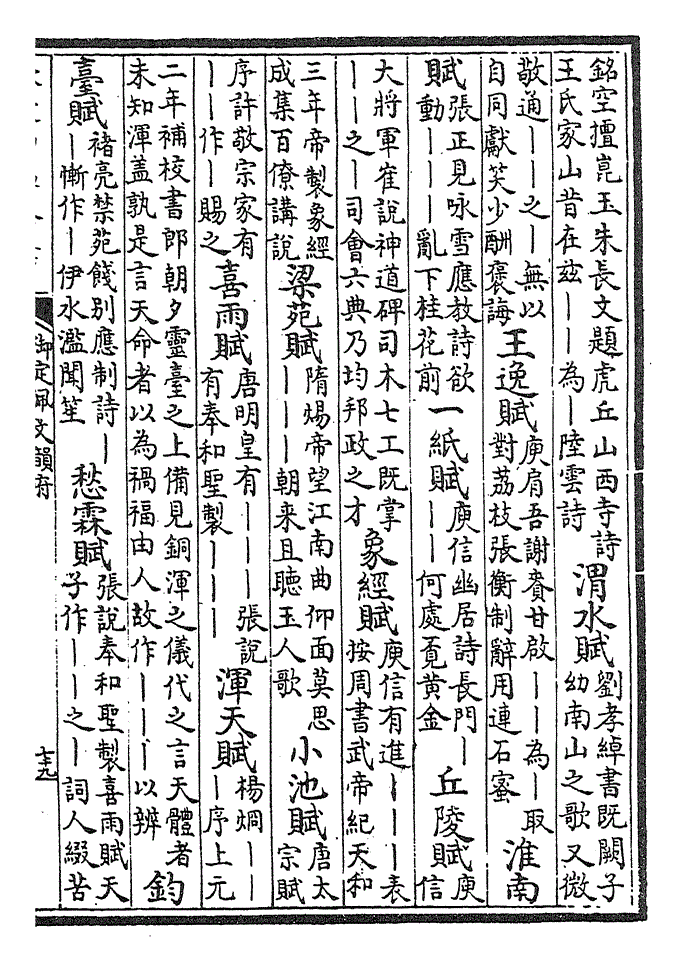 銘空擅崑玉朱長文題虎丘山西寺詩
王氏家山昔在茲——為—陸雲詩
渭水賦
劉孝綽書既闕子
幼南山之歌又微
敬通——之—無以
自同獻笑少酬褒誨
王逸賦
庾肩吾謝賚甘啟——為—取
對荔枝張衡制辭用連石蜜
淮南
賦
張正見咏雪應教詩欲
動———亂下桂花前
一紙賦
庾信幽居詩長門—
——何處覓黃金
丘陵賦
庾
信
大將軍崔說神道碑司木七工既掌
——之—司會六典乃均邦政之才
象經賦
庾信有進———表
按周書武帝紀天和
三年帝製象經
成集百僚講說
梁苑賦
隋煬帝望江南曲仰面莫思
———朝来且聽玉人歌
小池賦
唐太
宗賦
序許敬宗家有
——作—賜之
喜雨賦
唐明皇有———張說
有奉和聖製———
渾天賦
楊烱——
—序上元
二年補校書郎朝夕靈臺之上備見銅渾之儀代之言天體者
未知渾蓋孰是言天命者以為禍福由人故作———以辨
鈞
臺賦
褚亮禁苑餞別應制詩—
—慚作—伊水濫聞笙
愁霖賦
張說奉和聖製喜雨賦天
子作——之—詞人綴苦
御定佩文韻府